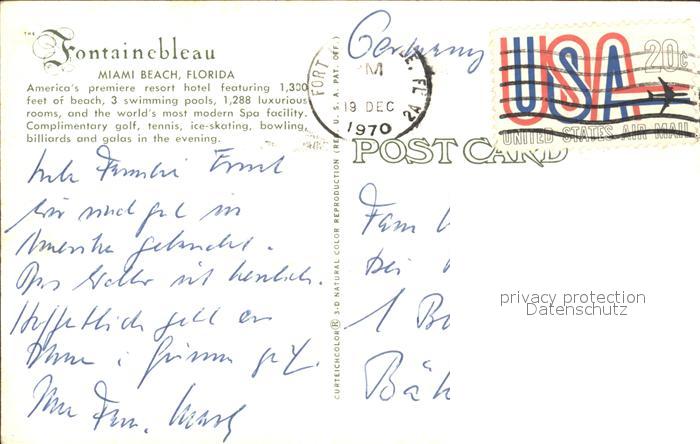 THE
Fontainebleau
MIAMI BEACH, FLORIDA
America's premiere resort hotel featuring 1,330
feet of beach, 3 swimming pools, 1,288 luxurious
rooms, and the world's most modern Spa facility.
Complimentary golf, tennis, ice-skating, bowling,
billiards and galas in the evening.
Familie
gut in
Amerika gelandet.
Das Wetter ist herrlich.
Hoffentlich geht es
Ihnen
Ihre Fam.
CURTEICHCOLOR® 3-D NATURAL COLOR REPRODUCTION (REG. U.S.A. PAT. OFF.)
Germany
FORT
M
19 DEC
1970
POST CARD
USA 20c
UNITED STATES AIR MAIL
Fam
1 B
Bäh
privacy protection
Datenschutz